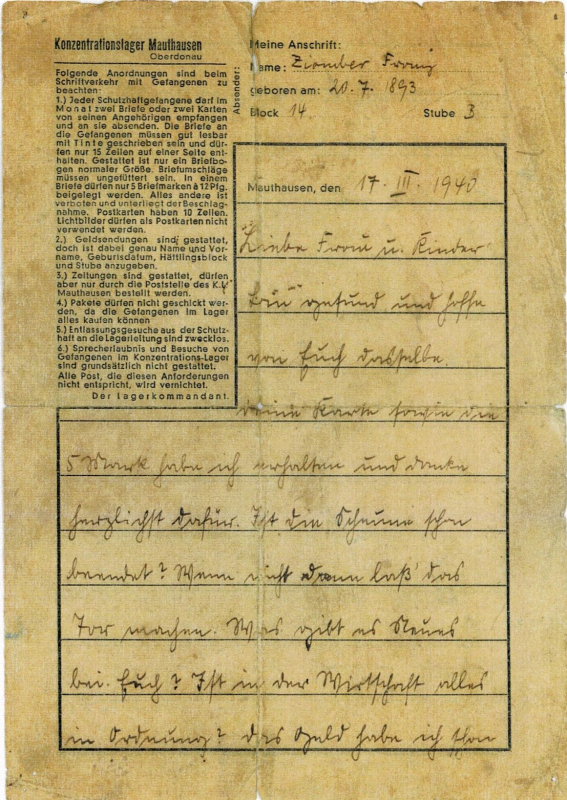 Konzentrationslager Mauthausen
Oberdonau
Folgende Anordnungen sind beim
Schriftverkehr mit Gefangenen zu
beachten:
1.) Jeder Schutzhaftgefangene darf im
Monat zwei Briefe oder zwei Karten
von seinen Angehörigen empfangen
und an sie absenden. Die Briefe an
die Gefangenen müssen gut lesbar
mit Tinte geschrieben sein und dür-
fen nur 15 Zeilen auf einer Seite ent-
halten. Gestattet ist nur ein Briefbo-
gen normaler Größe. Briefumschläge
müssen ungefüttert sein. In einem
Briefe dürfen nur 5 Briefmarken à 12 Pfg.
beigelegt werden. Alles andere ist
verboten und unterliegt der Beschlag-
nahme. Postkarten haben 10 Zeilen.
Lichtbilder dürfen als Postkarten nicht
verwendet werden.
2.) Geldsendungen sind gestattet,
doch ist dabei genau Name und Vor-
name, Geburtsdatum, Häftlingsblock
und Stube anzugeben.
3.) Zeitungen sind gestattet, dürfen
aber nur durch die Poststelle des K.L.
Mauthausen bestellt werden.
4.) Pakete dürfen nicht geschickt wer-
den, da die Gefangenen im Lager
alles kaufen können
5.) Entlassungsgesuche aus der Schutz-
haft an die Lagerleitung sind zwecklos.
6.) Sprecherlaubnis und Besuche von
Gefangenen im Konzentrations-Lager
sind grundsätzlich nicht gestattet.
Alle Post, die diesen Anforderungen
nicht entspricht, wird vernichtet.
Der Lagerkommandant.
Absender:
Meine Anschrift:
Name: Franz
geboren am: 20. 7. 1893
Block 14 Stube 3
Mauthausen, den 17. III. 1940
Liebe Frau u. Kinder
Bin gesund und hoffe
von Euch dasselbe.
deine Karte sowie die
5 Mark habe ich erhalten und danke
herzlichst dafür. Ist die Scheune schon
beendet? Wenn nicht dann laß das
Tor machen. Was gibt es Neues
bei Euch? Ist in der Wirtschaft alles
in Ordnung? das Geld habe ich schon